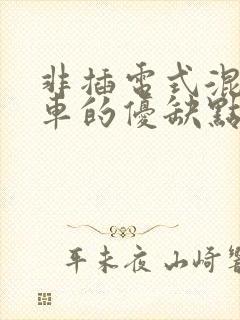 非插電式混
車的優缺點
平未夜 山崎響